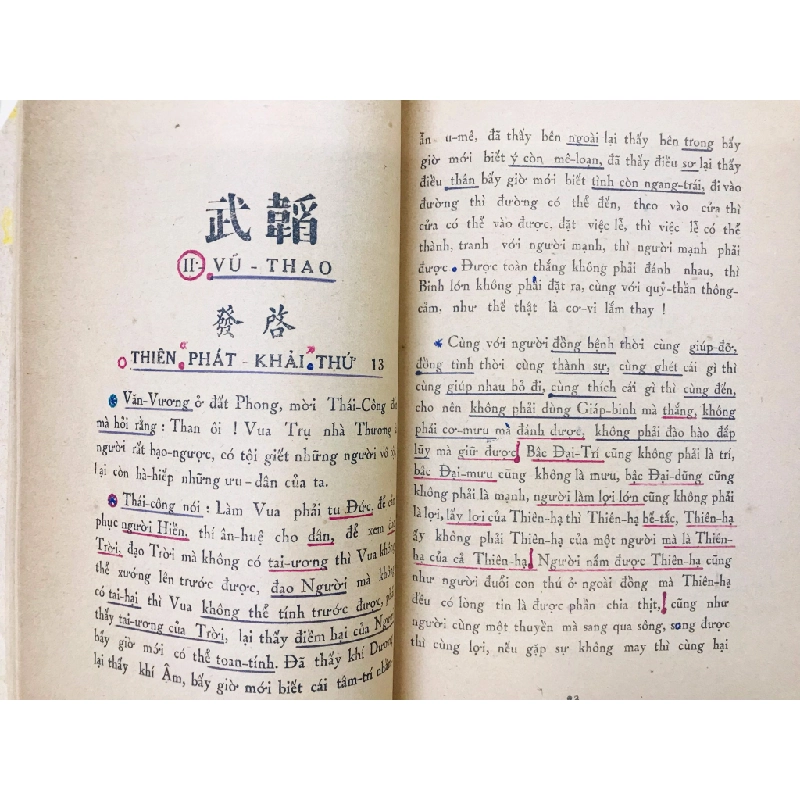 武韜
II - VŨ - THAO
發啓
THIÊN PHÁT - KHẢI THỨ 13
Văn-Vương ở đất Phong, mời Thái-Công đến
mà hỏi rằng : Than ôi ! Vua Trụ nhà Thương
người rất bạo-ngược, có tội giết những người vô
lại còn hà-hiếp những ưu-dân của ta.
Thái-công nói : Làm Vua phải tu Đức, để
phục người Hiền, thí ân-huệ cho dân, để xem
Trời, đạo Trời mà không có tai-ương thì Vua không
thể xướng lên trước được, đạo Người mà không
có tai-hại thì Vua không thể tính trước được, phải
thấy tai-ương của Trời, lại thấy điềm hại của Người
bấy giờ mới có thể toan-tính. Đã thấy khí Dương
lại thấy khí Âm, bấy giờ mới biết cái tâm-trí
ẩn u-mê, đã thấy bên ngoài lại thấy bên trong bấy
giờ mới biết ý còn mê-loạn, đã thấy điều sơ lại thấy
điều thân bấy giờ mới biết tình còn ngang-trái, đi vào
đường thì đường có thể đến, theo vào cửa thì
cửa có thể vào được, đặt việc lễ, thì việc lễ có thể
thành, tranh với người mạnh, thì người mạnh phải
được. Được toàn thắng không phải đánh nhau, thì
Binh lớn không phải đặt ra, cùng với quỷ-thần thông-
cảm, như thế thật là cơ-vi lắm thay !
Cùng với người đồng bệnh thời cùng giúp-đỡ,
đồng tình thời cùng thành sự, cùng ghét cái gì thì
cùng giúp nhau bỏ đi, cùng thích cái gì thì cùng đến,
cho nên không phải dùng Giáp-binh mà thắng, không
phải cơ-mưu mà đánh được, không phải đào hào đắp
lũy mà giữ được. Bậc Đại-Trí cũng không phải là trí,
bậc Đại-mưu cũng không là mưu, bậc Đại-dũng cũng
không phải là mạnh, người làm lợi lớn cũng không phải
là lợi, lấy lợi của Thiên-hạ thì Thiên-hạ bế-tắc, Thiên-hạ
ấy không phải Thiên-hạ của một người mà là Thiên-
hạ của cả Thiên-hạ. Người nắm được Thiên-hạ cũng
như người đuổi con thú ở ngoài đồng mà Thiên-hạ
đều có lòng tin là được phần chia thịt, cũng như
người cùng một thuyền mà sang qua sông, song được
thì cùng lợi, nếu gặp sự không may thì cùng hại